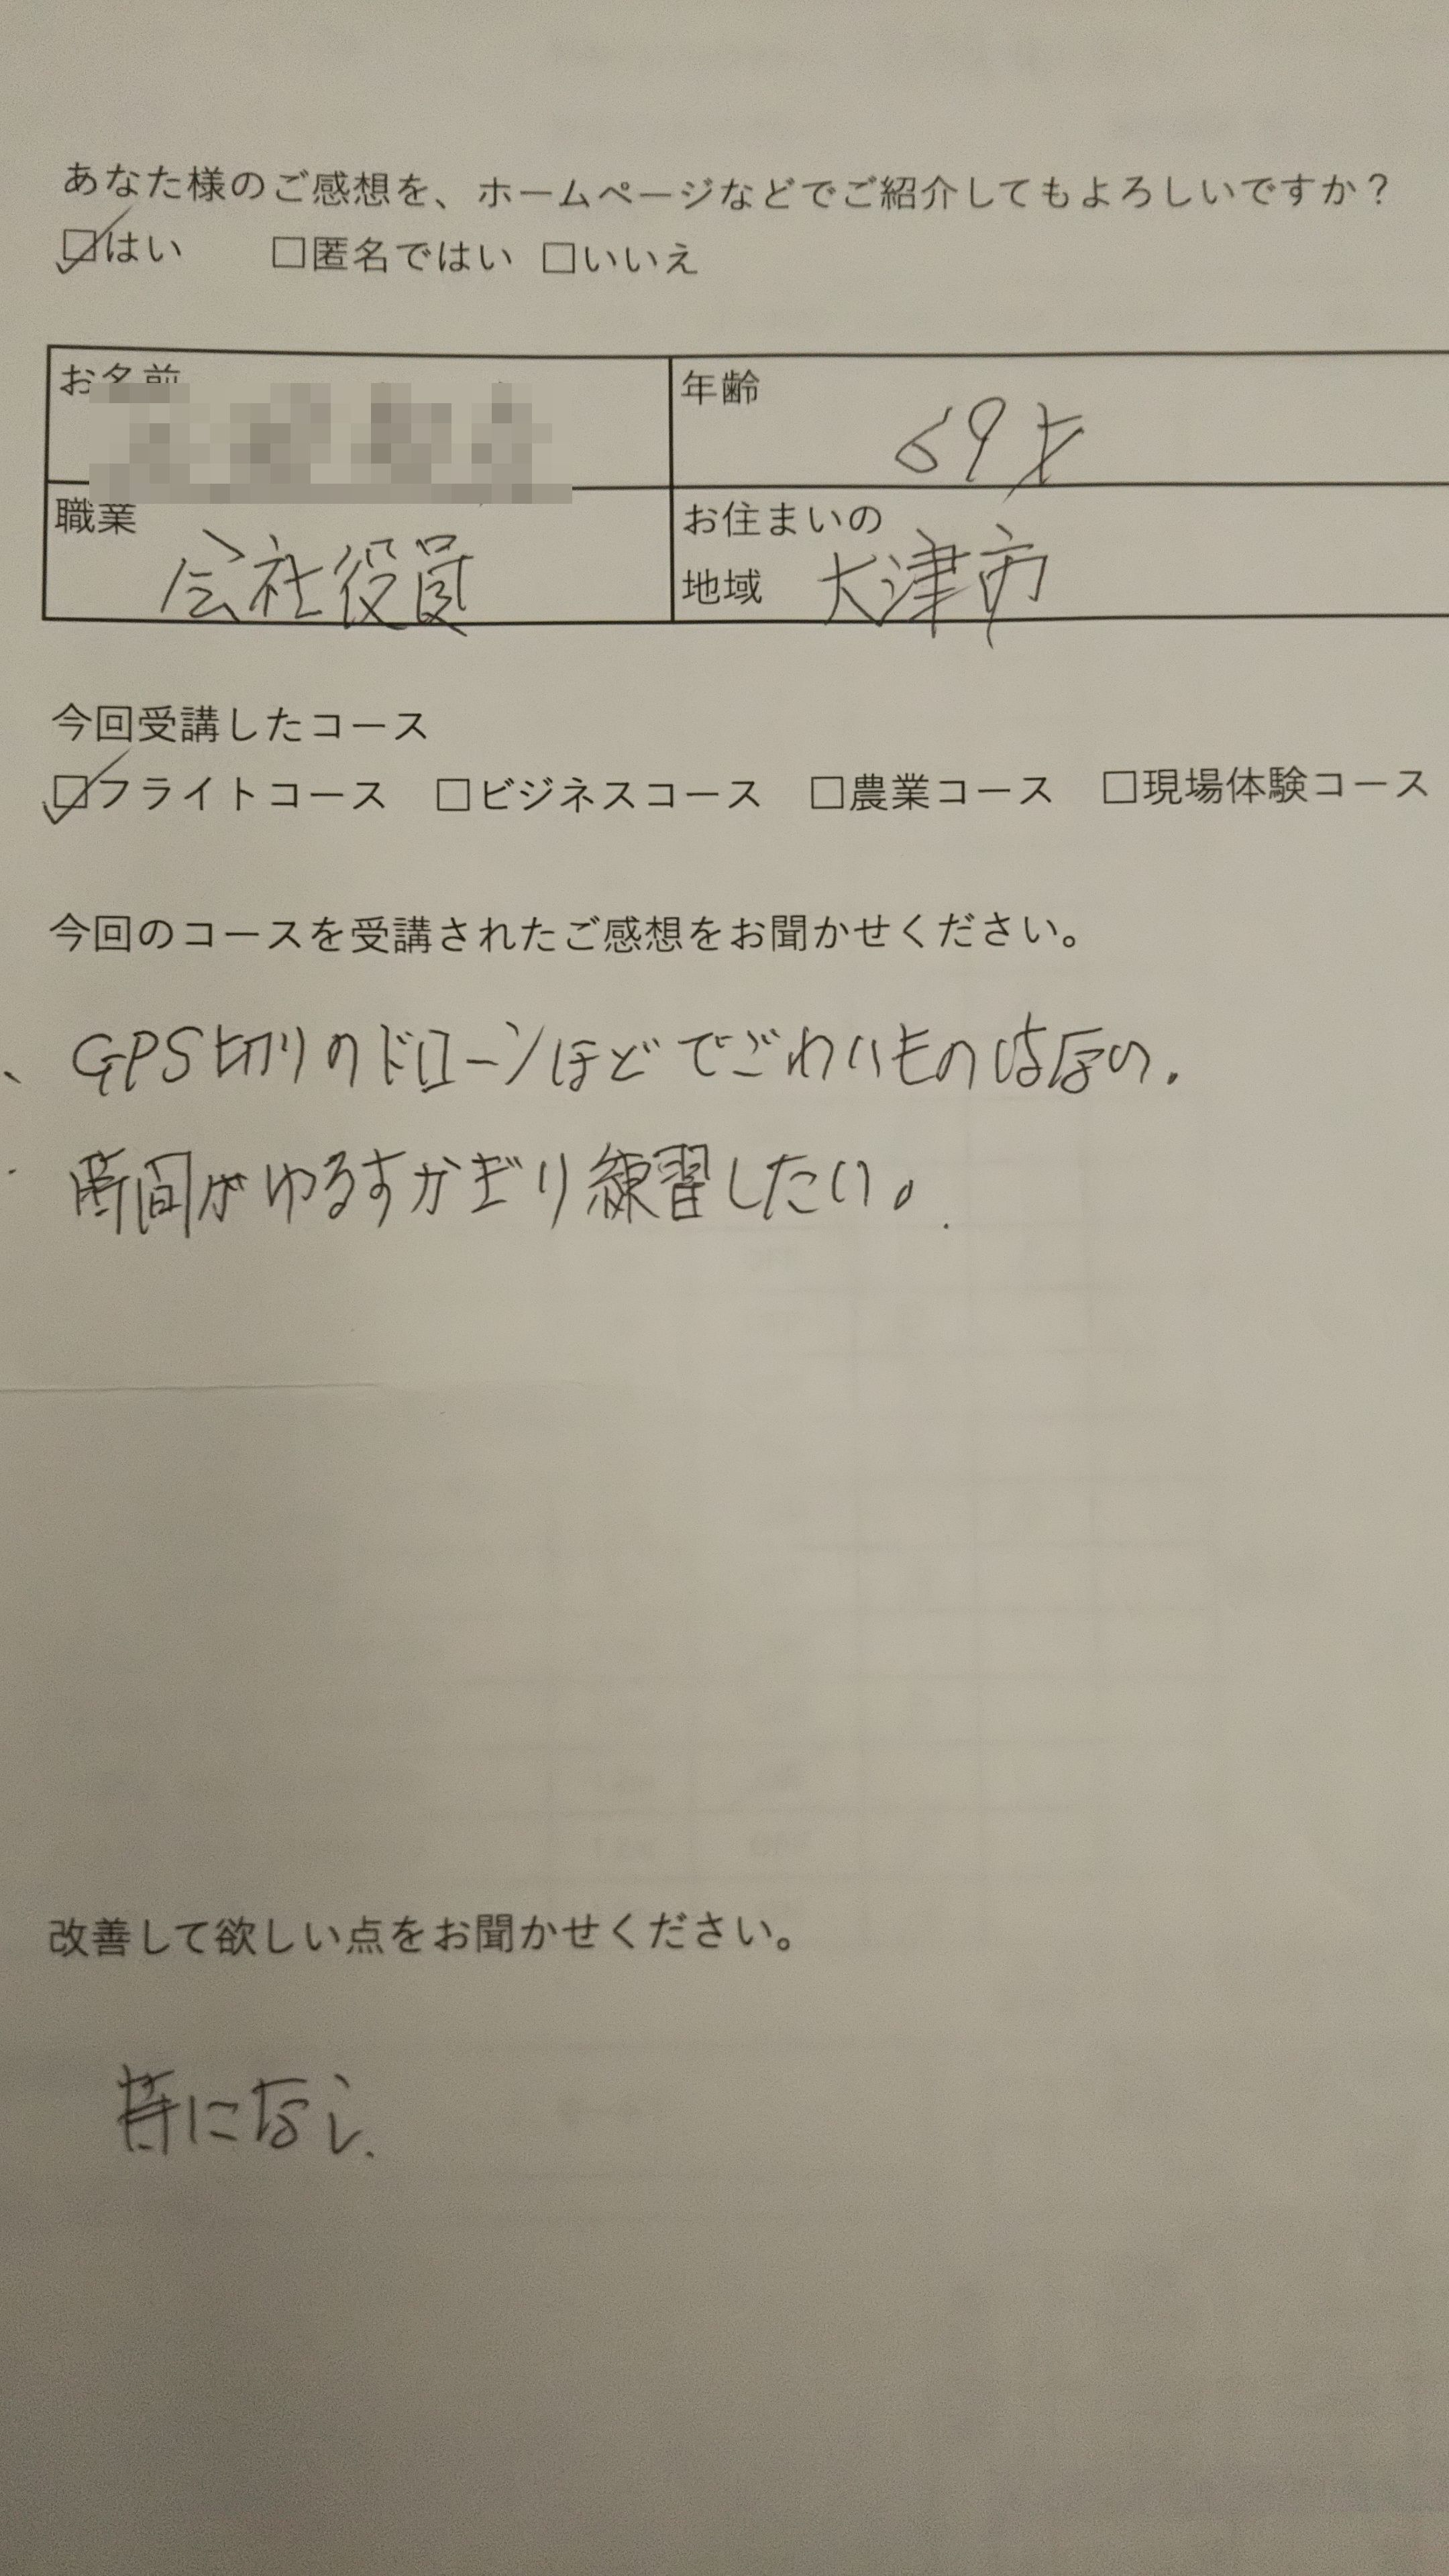 あなた様のご感想を、ホームページなどでご紹介してもよろしいですか？
☑はい □匿名ではい □いいえ
お名前
年齢 69才
職業 会社役員
お住まいの
地域 大津市
今回受講したコース
☑フライトコース □ビジネスコース □農業コース □現場体験コース
今回のコースを受講されたご感想をお聞かせください。
GPS切りのドローンほどでごわいものはない.
時間がゆるすかぎり練習したい。
改善して欲しい点をお聞かせください。
特になし.